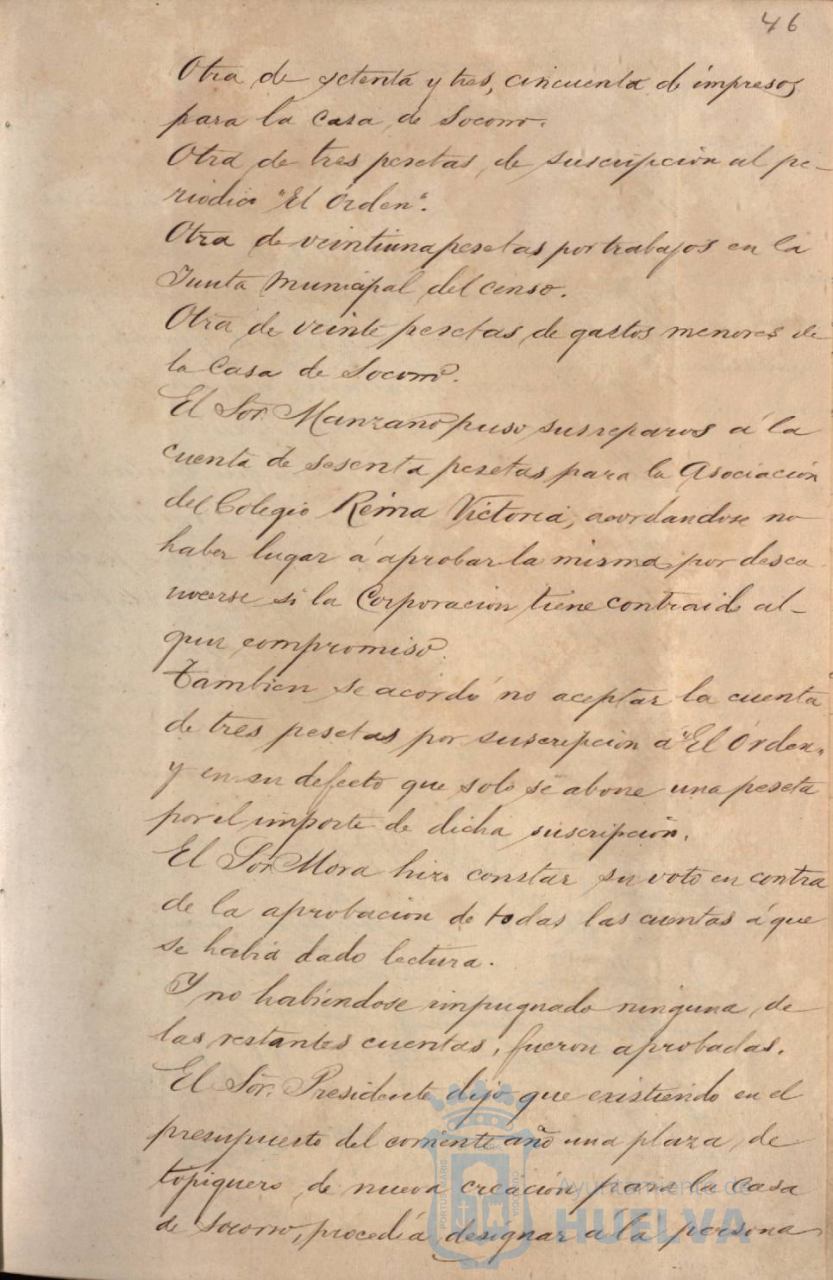 46
Otra de setenta y tres, cincuenta de impresos
para la Casa de Socorro.
Otra de tres pesetas, de suscripción al pe-
riodico "El Órden".
Otra de veintiuna pesetas por trabajos en la
Junta Municipal del censo.
Otra de veinte pesetas de gastos menores de
la Casa de Socorro.
El Sor. Manzano puso sus reparos á la
cuenta de sesenta pesetas para la Asociación
del Colegio Reina Victoria, acordandose no
haber lugar á aprobar la misma por desco
nocerse si la Corporación tiene contraido al-
gun compromiso.
Tambien se acordó no aceptar la cuenta
de tres pesetas por suscripción a "El Órden"
y en su defecto que solo se abone una peseta
por el importe de dicha suscripción.
El Sor. Mora hizo constar su voto en contra
de la aprobación de todas las cuentas á que
se había dado lectura.
Y no habiéndose impugnado ninguna de
las restantes cuentas, fueron aprobadas.
El Sor. Presidente dijo que existiendo en el
presupuesto del corriente año una plaza de
topiquero, de nueva creación para la Casa
de Socorro, procedía designar a la persona
Ayuntamiento de
HUELVA